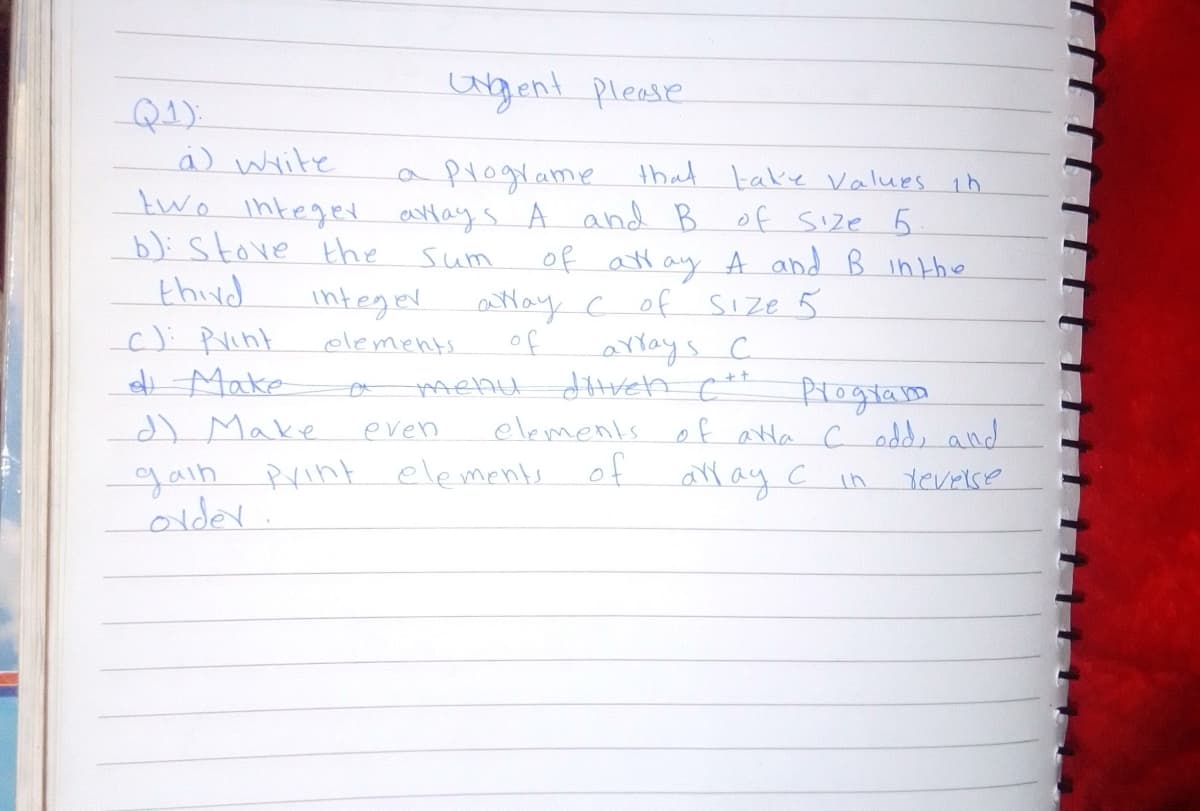 Urgent please
Q1):
a) write a programe that take values in
two integer arrays A and B of size 5.
b): Store the sum of array A and B in the
third integer array C of size 5
c): Print elements of arrays C
d) Make a menu driven C++ Program
d) Make even elements of arra C odd, and
gain print elements of array C in reverse
order.